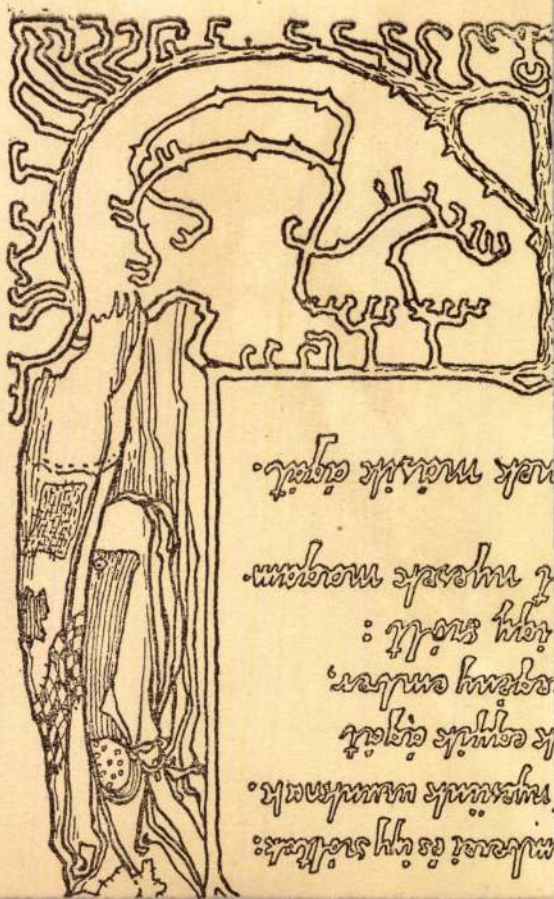 mberei és így szóltak:
nyesünk urunknak.
k egyik ágát
egény ember,
így szólt:
t nyesek magam-
nek másik ágát.